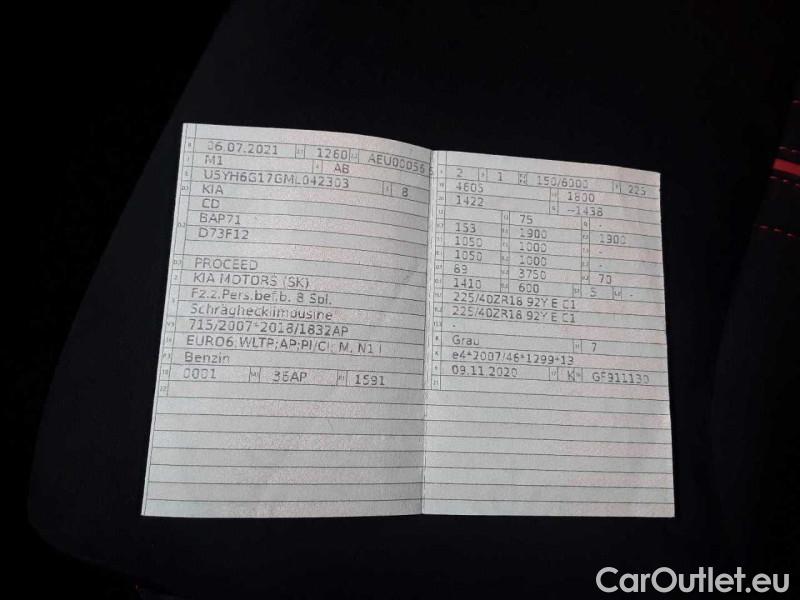 06.07.2021 1260 AEU00056
M1 AB
U5YH6G17GML042303 8
KIA
CD
BAP71
D73F12
PROCEED
KIA MOTORS (SK)
Fz.z.Pers.bef.b. 8 Spl.
Schräghecklimousine
715/2007*2018/1832AP
EURO6;WLTP;AP;PI/CI; M, N1 I
Benzin
0001 36AP 1591
2 1 150/6000 225
4605 1800
1422 --1438
75 -
153 1900 1900
1050 1000 -
1050 1000 -
89 3750 70
1410 600 5 -
225/40ZR18 92Y E C1
225/40ZR18 92Y E C1
-
Grau 7
e4*2007/46*1299*13
09.11.2020 K GF911130
CarOutlet.eu